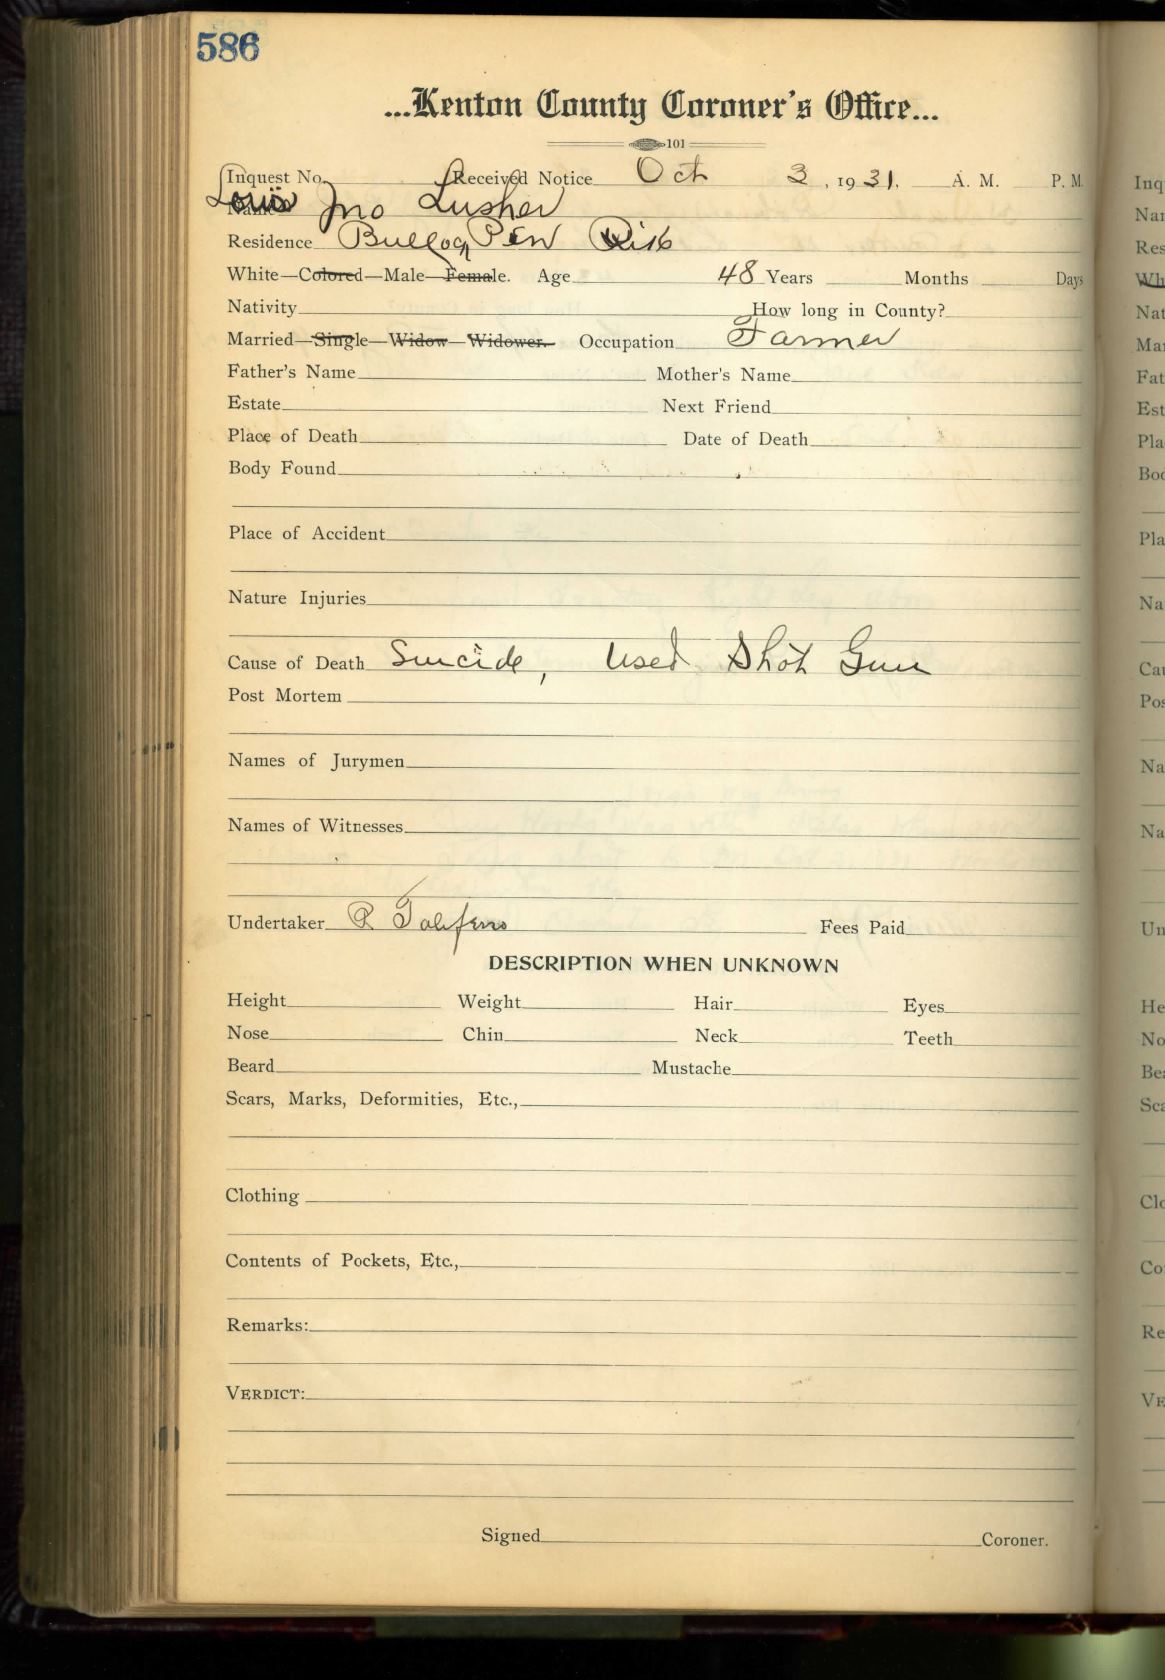 586
...Kenton County Coroner's Office...
101
Inquest No. Received Notice Oct 3, 1931. A. M. P. M.
Name Louis Jno Lusher
Residence Bullog Pen Pike
White—Colored—Male—Female. Age 48 Years Months Days
Nativity How long in County?
Married—Single—Widow—Widower. Occupation Farmer
Father's Name Mother's Name
Estate Next Friend
Place of Death Date of Death
Body Found
Place of Accident
Nature Injuries
Cause of Death Suicide, Used Shot Gun
Post Mortem
Names of Jurymen
Names of Witnesses
Undertaker Fees Paid
DESCRIPTION WHEN UNKNOWN
Height Weight Hair Eyes
Nose Chin Neck Teeth
Beard Mustache
Scars, Marks, Deformities, Etc.,
Clothing
Contents of Pockets, Etc.,
Remarks:
VERDICT:
Signed Coroner.